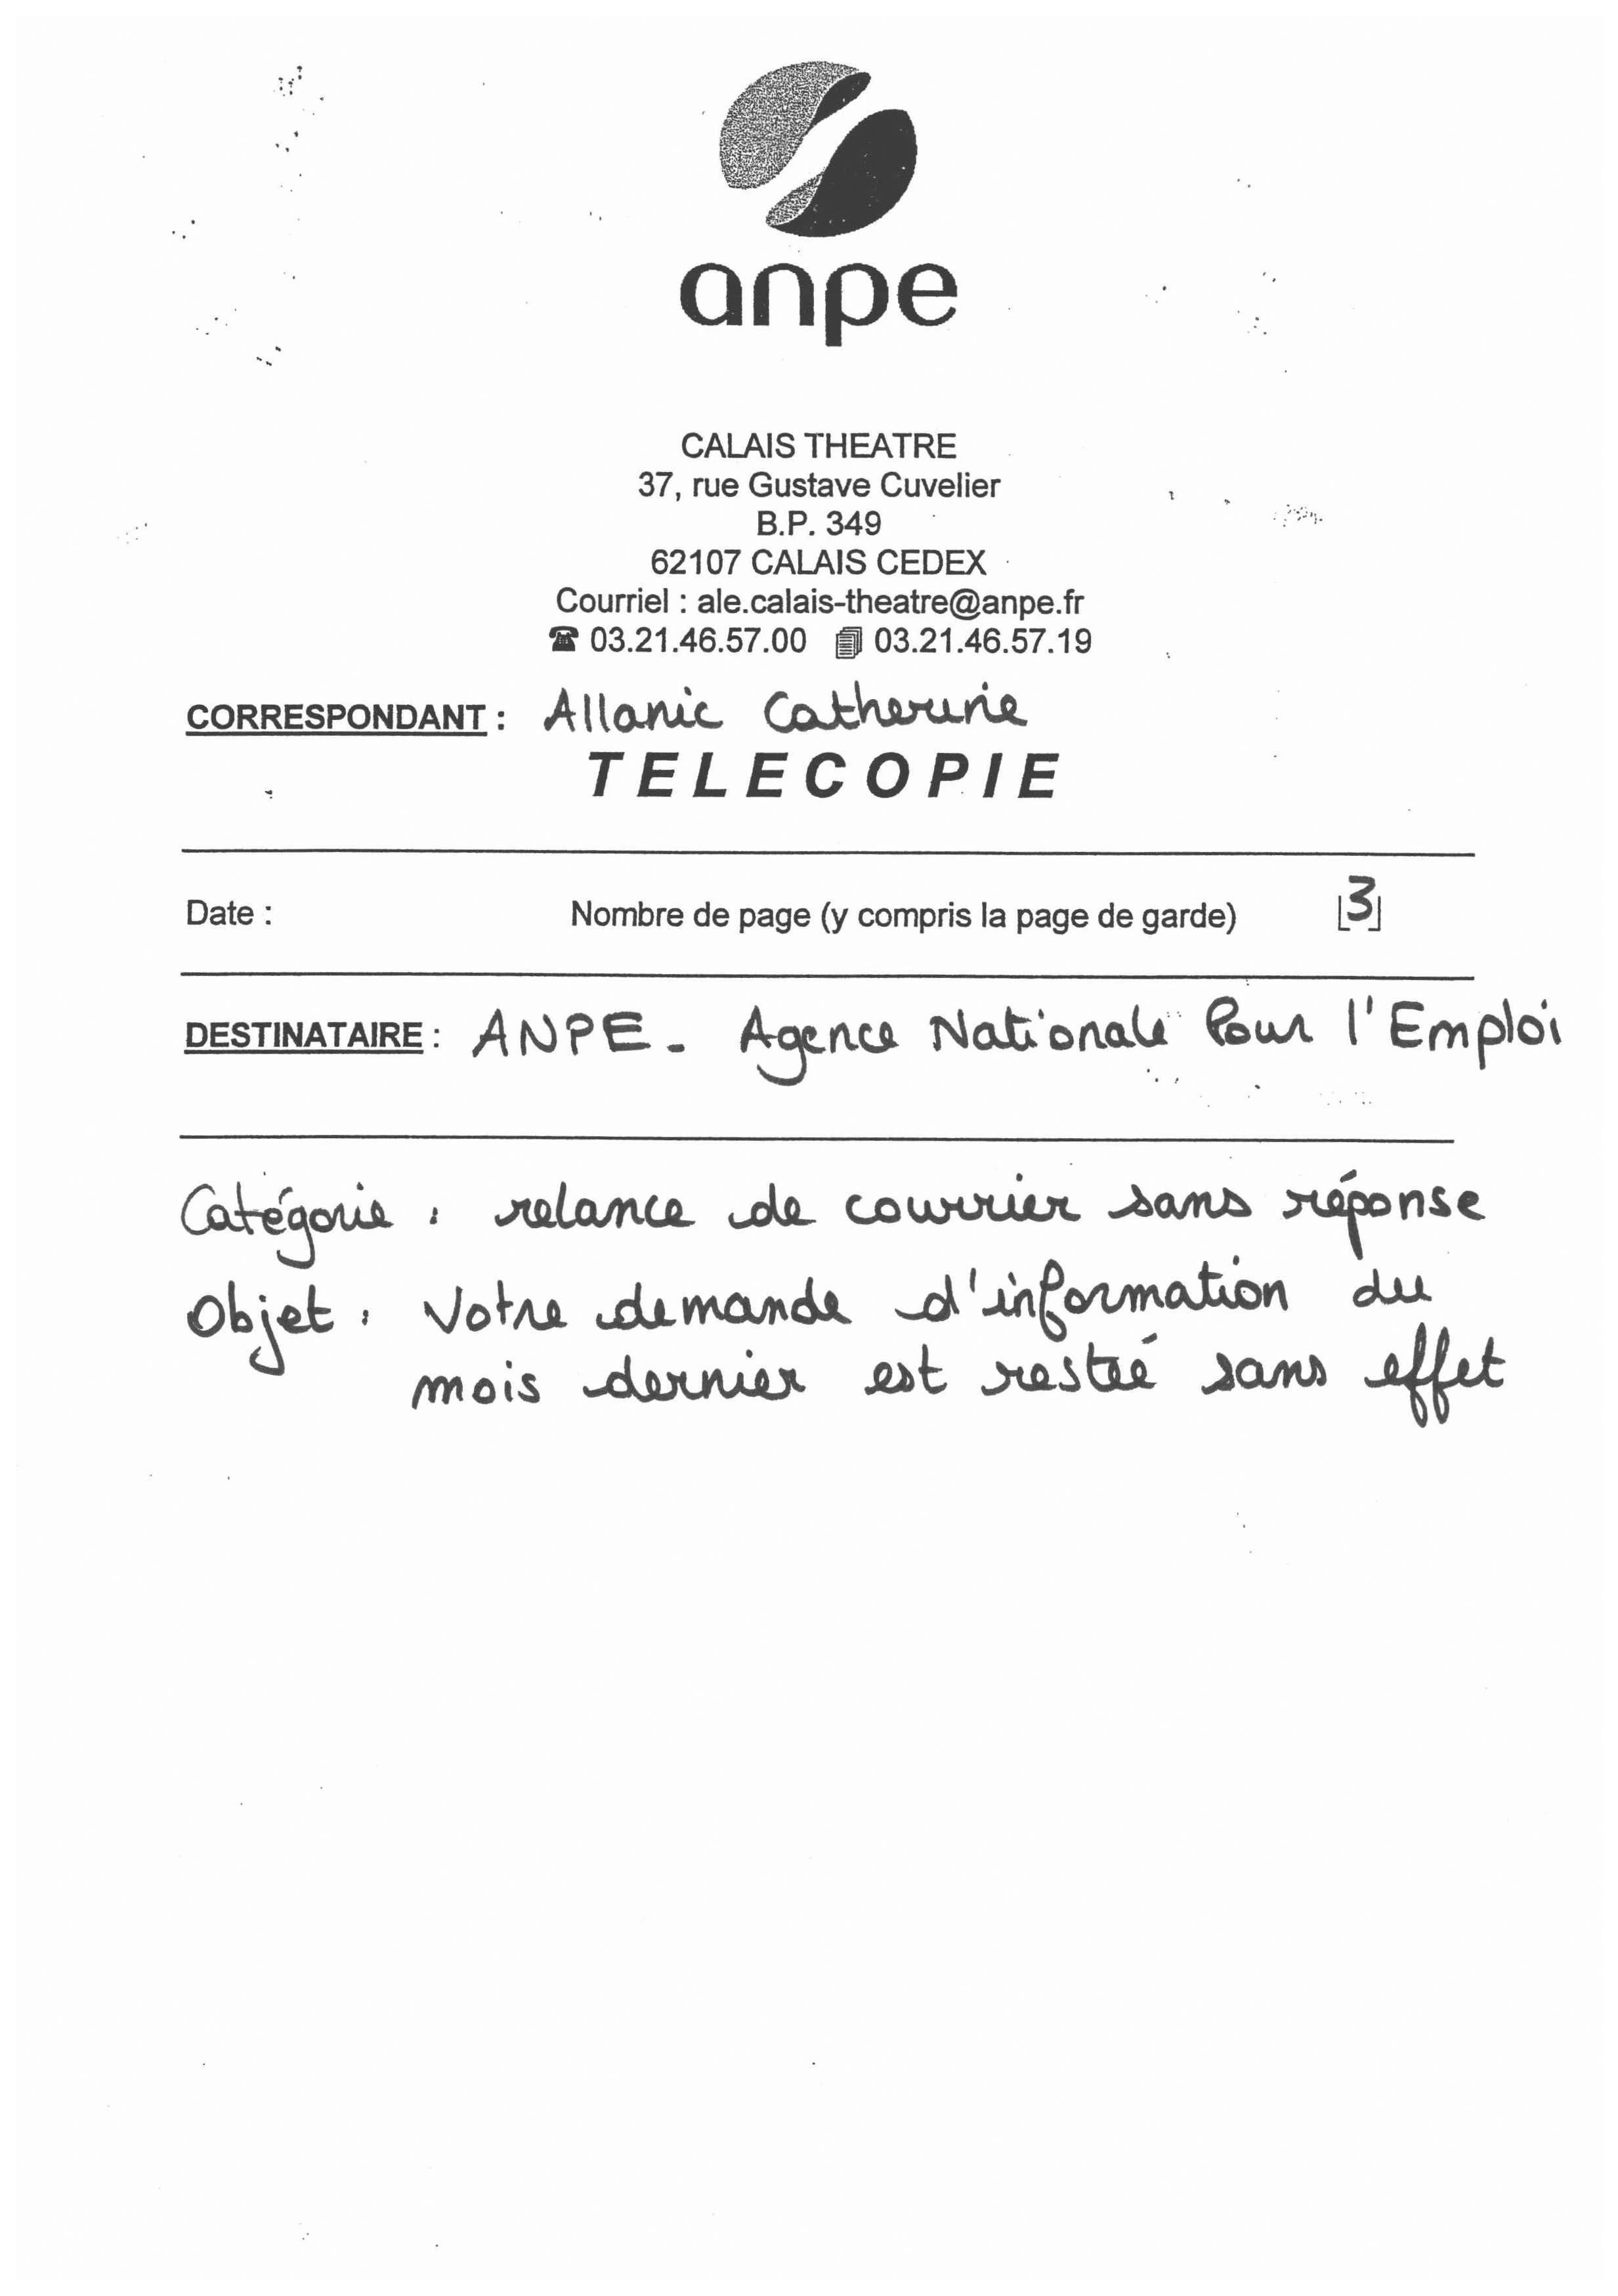 anpe
CALAIS THEATRE
37, rue Gustave Cuvelier
B.P. 349
62107 CALAIS CEDEX
Courriel : ale.calais-theatre@anpe.fr
☎ 03.21.46.57.00 03.21.46.57.19
CORRESPONDANT : Allanic Catherine
TELECOPIE
Date : Nombre de page (y compris la page de garde) 3
DESTINATAIRE : ANPE - Agence Nationale Pour l'Emploi
Catégorie : relance de courrier sans réponse
Objet : Votre demande d'information du
mois dernier est resteé sans effet